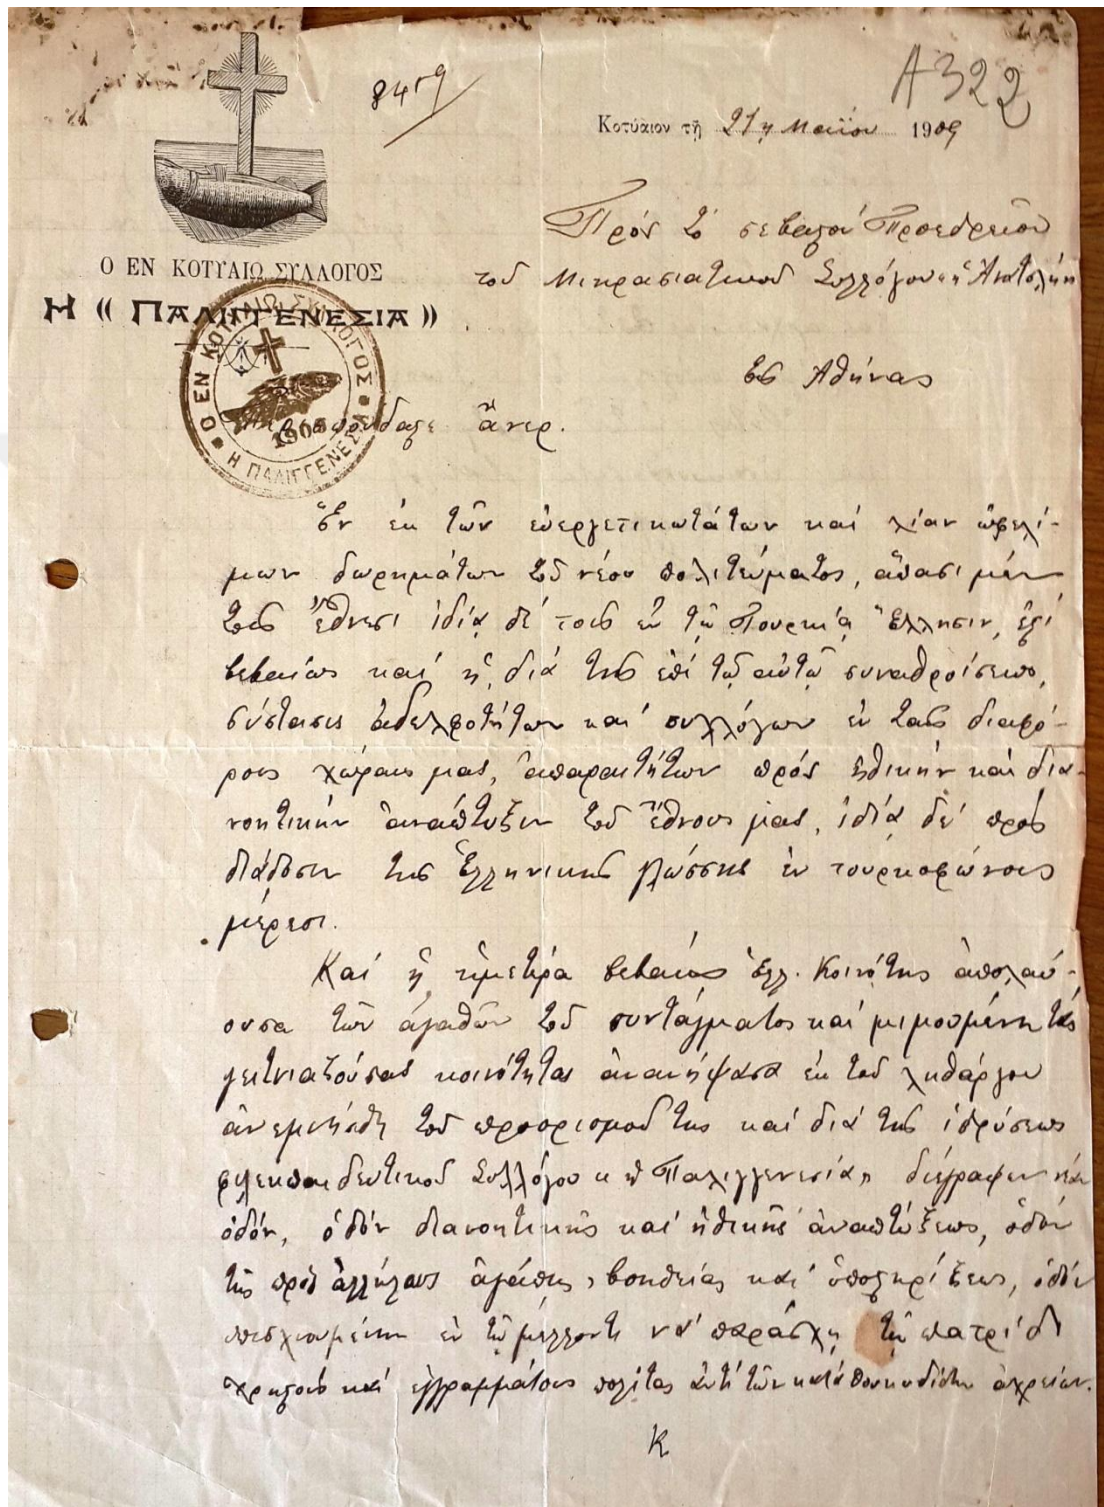 A322
Κοτύαιον τῇ 21ῃ Μαΐου 1909
Πρὸς τὸ σεβαστὸν Προεδρεῖον
τοῦ Μικρασιατικοῦ Συλλόγου «ἡ Ἀνατολή»
Εἰς Ἀθήνας
Ο ΕΝ ΚΟΤΥΑΙΩ ΣΥΛΛΟΓΟΣ
Η « ΠΑΛΙΓΓΕΝΕΣΙΑ »
Ο ΕΝ ΚΟΤΥΑΙΩ ΣΥΛΛΟΓΟΣ
1908
Η ΠΑΛΙΓΓΕΝΕΣΙΑ
ἄνερ.
Ἓν ἐκ τῶν εὐεργετικωτάτων καὶ λίαν ὠφελί-
μων δωρημάτων τοῦ νέου πολιτεύματος, ἅπασι μὲν
τοῖς ἔθνεσι ἰδίᾳ δὲ τοῖς ἐν τῇ Τουρκίᾳ Ἕλλησιν, ἐστὶ
βεβαίως καὶ ἡ, διὰ τῆς ἐπὶ τῷ αὐτῷ συναθροίσεως,
σύστασις ἀδελφοτήτων καὶ συλλόγων ἐν ταῖς διαφό-
ροις χώραις μας, ἀπαραιτήτων πρὸς ἠθικὴν καὶ δια-
νοητικὴν ἀνάπτυξιν τοῦ ἔθνους μας, ἰδίᾳ δὲ πρὸς
διάδοσιν τῆς Ἑλληνικῆς γλώσσης ἐν τουρκοφώνοις
μέρεσι.
Καὶ ἡ ἡμετέρα βεβαίως ἑλλ. Κοινότης ἀπολαύ-
ουσα τῶν ἀγαθῶν τοῦ συντάγματος καὶ μιμουμένη τὰς
γειτνιαζούσας κοινότητας ἀνανήψασα ἐκ τοῦ ληθάργου
ἀνεμνήσθη τοῦ προορισμοῦ της καὶ διὰ τῆς ἱδρύσεως
φιλεκπαιδευτικοῦ Συλλόγου «ἡ Παλιγγενεσία» διέγραψεν νέαν
ὁδόν, ὁδὸν διανοητικῆς καὶ ἠθικῆς ἀναπτύξεως, ὁδὸν
τῆς πρὸς ἀλλήλους ἀγάπης, βοηθείας καὶ ὑποστηρίξεως, ὁδὸν
ὑπισχνουμένην ἐν τῷ μέλλοντι νὰ παράσχῃ τῇ πατρίδι
χρηστοὺς καὶ ἐγγραμμάτους πολίτας ἀντὶ τῶν κατὰ Θουκυδίδην ἀχρείων.
Κ